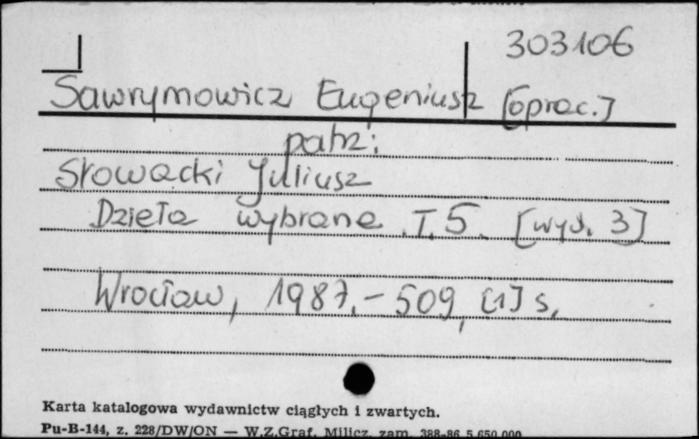 303106
Sawrymowicz Eugeniusz [oprac.]
patrz:
Słowacki Juliusz
Dzieła wybrane T. 5. [wyd. 3]
Wrocław, 1987. - 509, [1] s.
Karta katalogowa wydawnictw ciągłych i zwartych.
Pu-B-144, z. 228/DW/ON — W.Z.Graf. Milicz, zam. 388-86 5.650.000